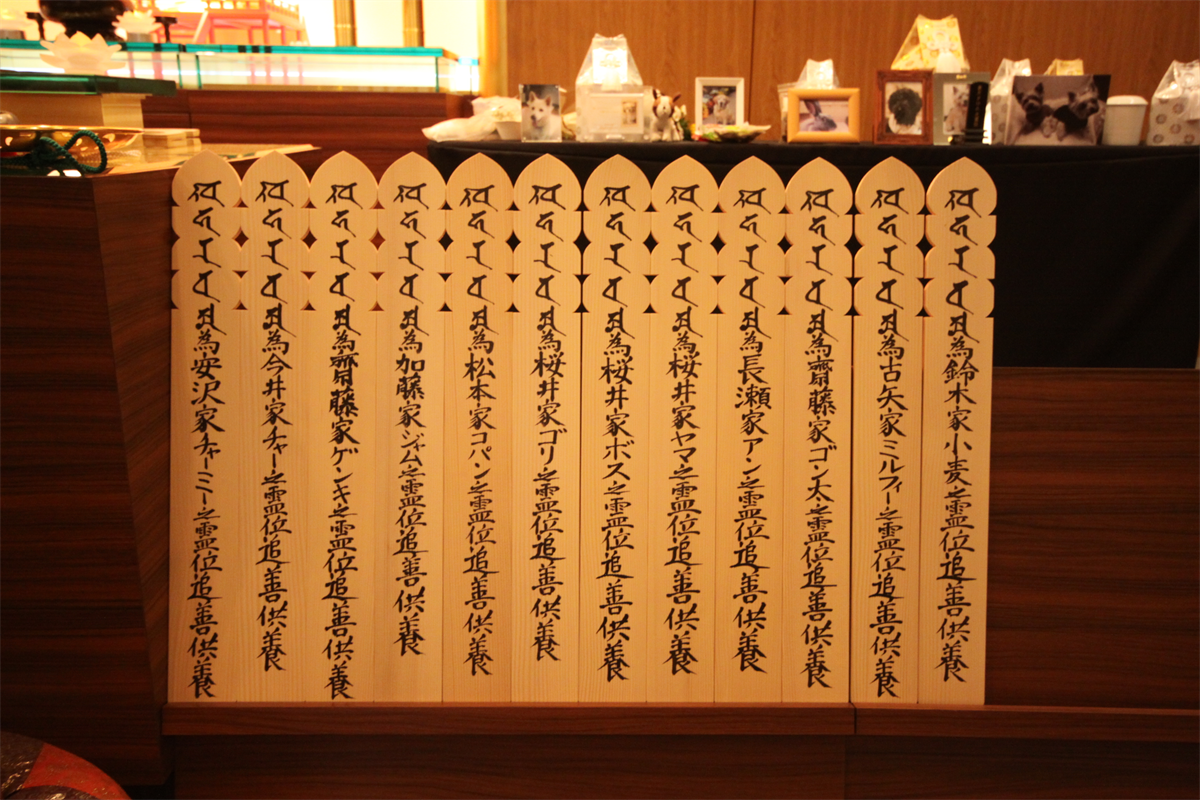 𑖎𑖾 為鈴木家小麦之霊位追善供養
為古矢家ミルフィー之霊位追善供養
為齋藤家ゴン太之霊位追善供養
為長瀬家アン之霊位追善供養
為桜井家ヤマ之霊位追善供養
為桜井家ボス之霊位追善供養
為桜井家ゴリ之霊位追善供養
為松本家コパン之霊位追善供養
為加藤家ジャム之霊位追善供養
為齋藤家ゲンキ之霊位追善供養
為今井家チャー之霊位追善供養
為安沢家チャーミー之霊位追善供養